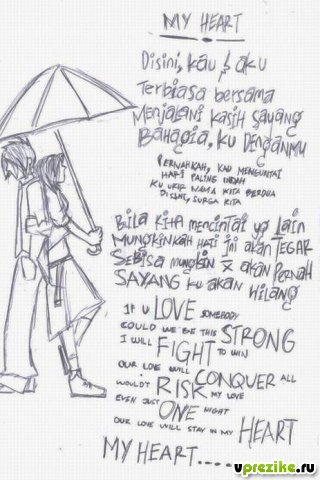 MY HEART
Disini, kau & aku
Terbiasa bersama
Menjalani kasih sayang
Bahagia, ku denganmu
Pernahkah, kau menguntai
Hari paling indah
Ku ukir nama kita berdua
Disini, surga kita
Bila kita mencintai yg lain
Mungkinkah hati ini akan tegar
Sebisa mungkin x akan pernah
SAYANG ku akan hilang
If u LOVE somebody
could we be this STRONG
I will FIGHT to win
our love will CONQUER all
wouldn't RISK my love
even just ONE night
our love will stay in my HEART
MY HEART.....
uprezike.ru